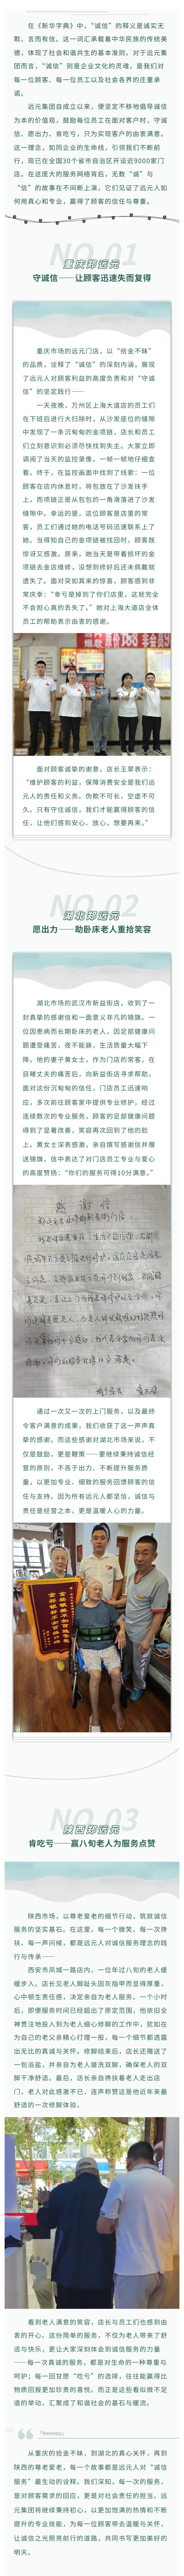 在《新华字典》中，“诚信”的释义是诚实无
欺、言而有信。这一词汇承载着中华民族的传统美
德，体现了社会和谐共生的基本准则。对于远元集
团而言，“诚信”则是企业文化的灵魂，是我们对
每一位顾客、每一位员工以及社会各界的庄重承
诺。
远元集团自成立以来，便坚定不移地倡导诚信
为本的价值观，鼓励每位员工在面对客户时，守诚
信、愿出力、肯吃亏，只为实现客户的由衷满意。
这一理念，如同企业的生命线，引领我们不断前
行，现已在全国30个省市自治区开设近9000家门
店。在这庞大的服务网络背后，无数“诚”与
“信”的故事在不间断上演，它们见证了远元人如
何用真心和专业，赢得了顾客的信任与尊重。
NO.01
重庆郑远元
守诚信——让顾客迅速失而复得
重庆市场的远元门店，以“拾金不昧”
的品质，诠释了“诚信”的深刻内涵，展现
了远元人对顾客利益的高度负责和对“守诚
信”的坚定践行——
一天夜晚，万州区上海大道店的员工们
在下班后进行大扫除时，从沙发座位的缝隙
中发现了一条沉甸甸的金项链，店长和员工
们立刻意识到必须尽快找到失主。大家立即
调阅了当天的监控录像，一帧一帧地仔细查
看。终于，在监控画面中找到了线索：一位
顾客在店内休息时，将包放在了沙发扶手
上，而项链正是从包包的一角滑落进了沙发
缝隙中。幸运的是，这位顾客是店里的常
客，员工们通过她的电话号码迅速联系上了
她。当得知自己的金项链被找回时，顾客既
惊讶又感激。原来，她当天是带着损坏的金
项链去金店维修，没想到修好后还未佩戴就
遗失了。面对突如其来的惊喜，顾客感到非
常庆幸：“幸亏是掉到了你们店里，这就完全
不会担心真的丢失了。”她对上海大道店全体
员工的帮助表示由衷的感谢。
面对顾客诚挚的谢意，店长王翠表示：
“维护顾客的利益，保障消费安全是我们远
元人的责任和义务。伪欺不可长，空虚不可
久，只有守住诚信，我们才能赢得顾客的信
任，让他们感到安心、放心，想要再来。”
NO.02
湖北郑远元
愿出力——助卧床老人重拾笑容
湖北市场的武汉市新益街店，收到了一
封真挚的感谢信和一面意义非凡的锦旗。一
位因患病而长期卧床的老人，因足部健康问
题遭受痛苦，夜不能寐，生活质量大幅下
降。他的妻子黄女士，作为门店的常客，在
目睹丈夫的痛苦后，向新益街店寻求帮助。
面对这份沉甸甸的信任，门店员工迅速响
应，多次前往顾客家中提供专业修护，经过
连续数次的专业服务，顾客的足部健康问题
得到了显著改善，笑容再次回到了他的脸
上。黄女士深表感激，亲自撰写感谢信并赠
送锦旗，信中表达了对门店员工专业与爱心
的高度赞扬：“你们的服务可得10分满意。”
感谢信
通过一次又一次的上门服务，以及最终
令客户满意的成果，我们收获了这一声声真
挚的感谢。而这些感谢对湖北市场来说，不
仅是鼓励，更是鞭策——要继续秉持诚信经
营的原则，不吝于出力、不断提升服务质
量，以更加专业、细致的服务回馈顾客的信
任与支持。因为所有远元人都坚信，诚信与
责任是经营之本，更是温暖人心的力量。
NO.03
陕西郑远元
肯吃亏——赢八旬老人为服务点赞
陕西市场，以尊老爱老的细节行动，筑就诚信
服务的坚实基石。在这里，每一个微笑、每一次搀
扶、每一声问候，都是远元人对诚信服务理念的践
行与传承——
西安市凤城一路店内，一位年过八旬的老人缓
缓步入。店长见老人脚趾头因灰指甲而显得厚重，
心中顿生责任感，决定亲自为老人服务。一个小时
后，即便服务时间已经超出了原定范围，他依旧全
神贯注地投入到为老人细心修脚的工作中，犹如在
为自己的老父亲精心打理一般，每一个细节都透露
出无比的真诚与关怀。修脚结束后，店长还赠送了
一包浴盐，并亲自为老人搓洗双脚，确保老人的双
脚干净舒适。最后，店长亲自搀扶着老人走出店
门，老人对此感激不已，连声称赞这是他近年来最
舒适的一次修脚体验。
看到老人满意的笑容，店长与员工们也感到由
衷的开心。这份简单的服务，不仅为老人带来了舒
适与快乐，更让大家深刻体会到诚信服务的力量
——每一次真诚的服务，都是对生命的一种尊重与
呵护；每一回甘愿“吃亏”的选择，往往能赢得比
物质回报更加珍贵的喜悦。而正是这些看似微不足
道的举动，汇聚成了和谐社会的基石与暖流。
「Honesty」
从重庆的拾金不昧，到湖北的真心关怀，再到
陕西的尊老爱老，每一个故事都是远元人对“诚信
服务”最生动的诠释。我们深知，每一次的服务，
是对顾客需求的回应，更是对社会责任的担当。远
元集团将继续秉持初心，以更加饱满的热情和不断
提升的专业技能，为每一位顾客带去温暖与关怀，
让诚信之光照亮前行的道路，共同书写更加美好的
明天。